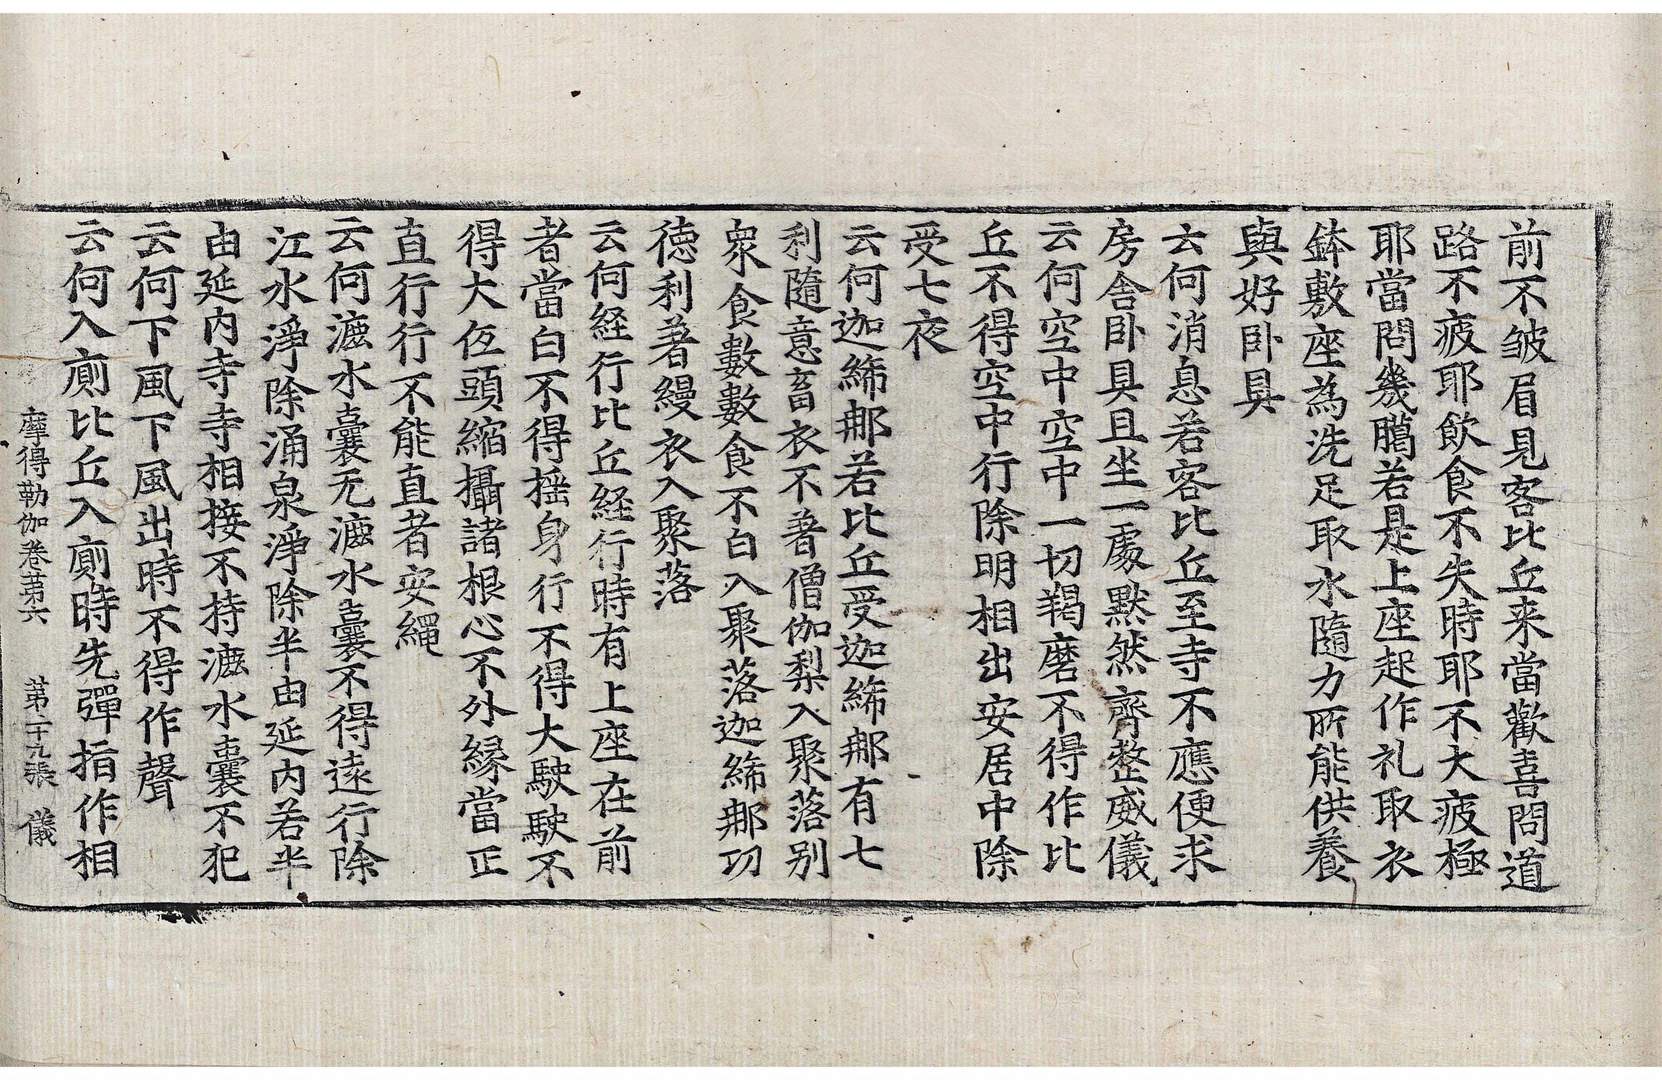 前不皱眉見客比丘来當歡喜問道
路不疲耶飲食不失時耶不大疲極
耶當問幾臈若是上座起作礼取衣
鉢敷座為洗足取水隨力所能供養
與好卧具
云何消息若客比丘至寺不應便求
房舍卧具且坐一處黙然齊整威儀
云何空中空中一切羯磨不得作比
丘不得空中行除明相出安居中除
受七夜
云何迦絺那若比丘受迦絺那有七
利隨意畜衣不著僧伽梨入聚落别
衆食數數食不白入聚落迦絺那功
徳利著縵衣入聚落
云何経行比丘経行時有上座在前
者當白不得摇身行不得大駛駛不
得大仾頭縮攝諸根心不外縁當正
直行行不能直者安繩
云何漉水囊无漉水囊不得逺行除
江水淨除涌泉淨除半由延内若半
由延内寺寺相接不持漉水囊不犯
云何下風下風出時不得作聲
云何入廁比丘入廁時先彈指作相
摩得勒伽卷苐六 苐二十九張 儀